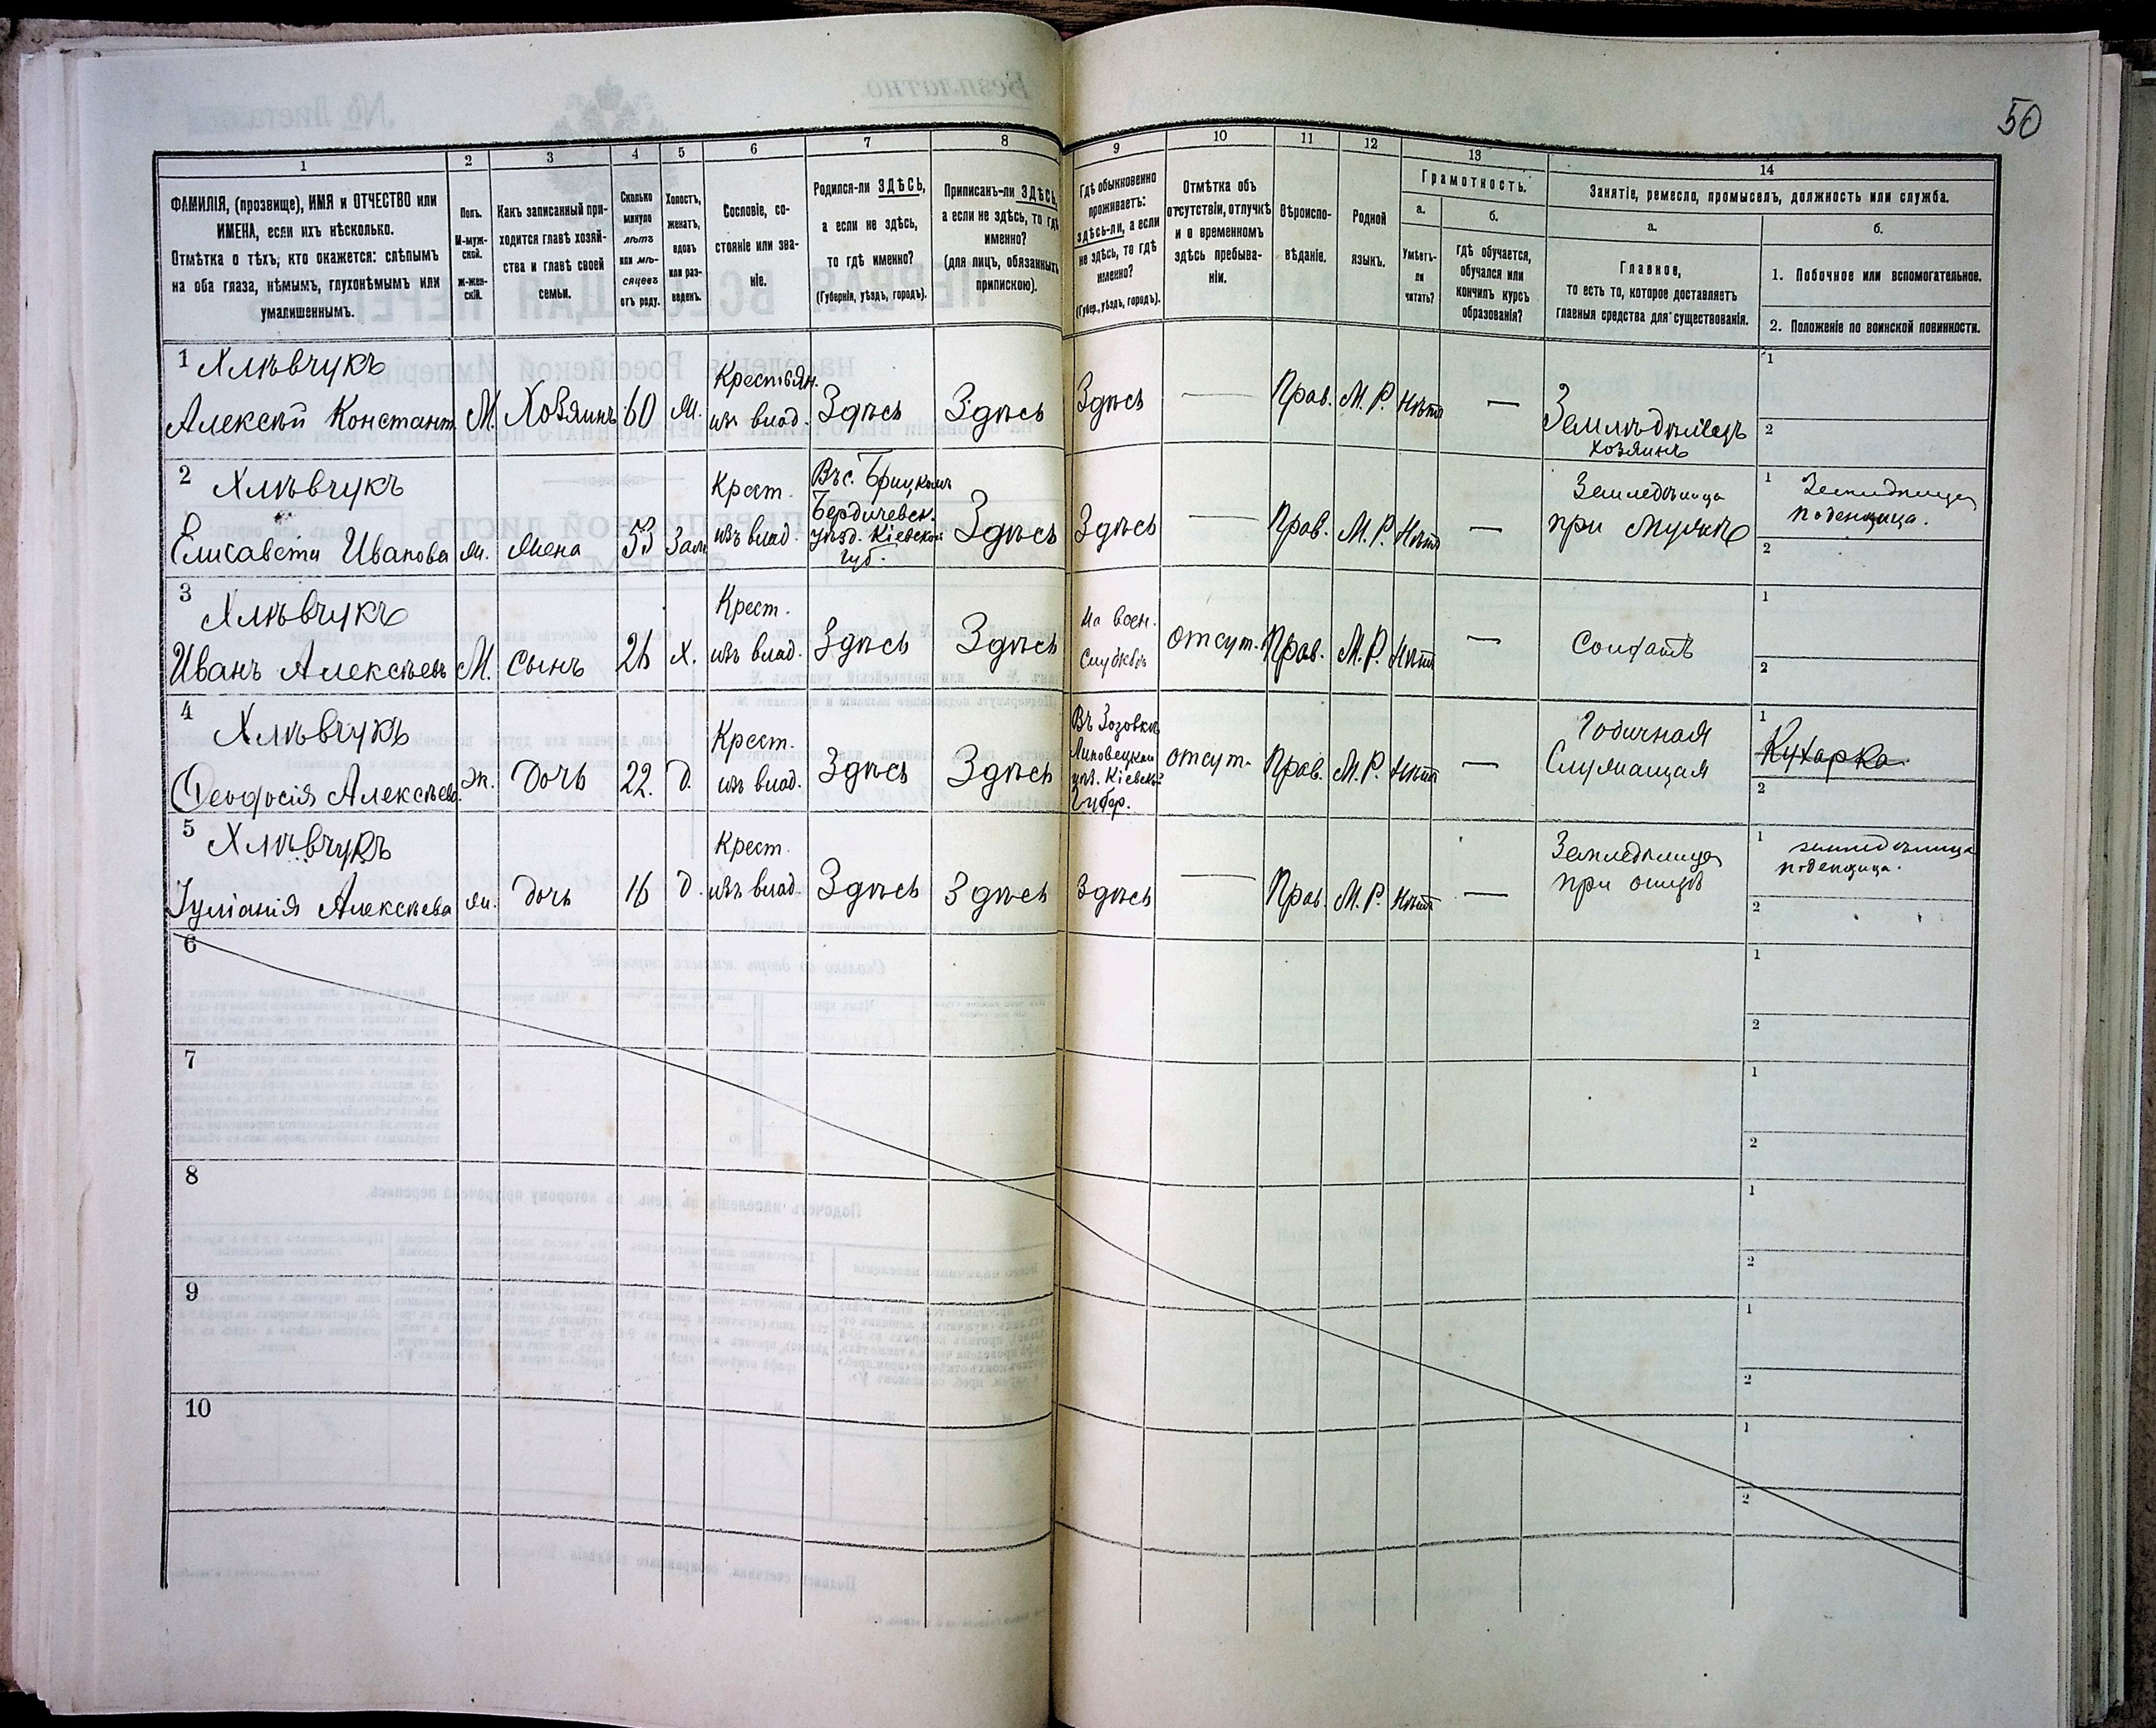 50
1
2
3
4
5
6
7
8
9
10
11
12
13
14
ФАМИЛІЯ, (прозвище), ИМЯ и ОТЧЕСТВО или
ИМЕНА, если ихъ нѣсколько.
Отмѣтка о тѣхъ, кто окажется: слѣпымъ
на оба глаза, нѣмымъ, глухонѣмымъ или
умалишеннымъ.
Полъ.
М-муж-
ской.
Ж-жен-
скій.
Какъ записанный при-
ходится главѣ хозяй-
ства и главѣ своей
семьи.
Сколько
минуло
лѣтъ
или мѣ-
сяцевъ
отъ роду.
Холостъ,
женатъ,
вдовъ
или раз-
веденъ.
Сословіе, со-
стояніе или зва-
ніе.
Родился-ли ЗДѢСЬ,
а если не здѣсь,
то гдѣ именно?
(Губернія, уѣздъ, городъ).
Приписанъ-ли ЗДѢСЬ,
а если не здѣсь, то гдѣ
именно?
(для лицъ, обязанныхъ
припискою).
Гдѣ обыкновенно
проживаетъ:
здѣсь-ли, а если
не здѣсь, то гдѣ
именно?
(Губер., уѣздъ, городъ).
Отмѣтка объ
отсутствіи, отлучкѣ
и о временномъ
здѣсь пребыва-
ніи.
Вѣроиспо-
вѣданіе.
Родной
языкъ.
Грамотность.
а.
б.
Умѣетъ-
ли
читать?
Гдѣ обучается,
обучался или
кончилъ курсъ
образованія?
Занятіе, ремесло, промыселъ, должность или служба.
а.
б.
Главное,
то есть то, которое доставляетъ
главныя средства для существованія.
1. Побочное или вспомогательное.
2. Положеніе по воинской повинности.
1 Хлѣвчукъ
Алексѣй Констант.
М.
Хозяинъ
60
ж.
Крестьян.
изъ влад.
Здѣсь
Здѣсь
Здѣсь
—
Прав.
М. Р.
Нѣтъ
—
Земледѣлецъ
хозяинъ
1
2
2 Хлѣвчукъ
Елисавета Иванова
ж.
жена
53
Зам.
Крест.
изъ влад.
Въ с.
Бердичевск.
уѣзд. Кіевской
губ.
Здѣсь
Здѣсь
—
Прав.
М. Р.
Нѣтъ
—
Земледѣлица
при мужѣ
1 Земледѣлица
поденщица.
2
3 Хлѣвчукъ
Иванъ Алексѣевъ
М.
сынъ
26
х.
Крест.
изъ влад.
Здѣсь
Здѣсь
На воен.
службѣ
отсут.
Прав.
М. Р.
Нѣтъ
—
Солдатъ
1
2
4 Хлѣвчукъ
Феодосія Алексѣева
ж.
дочь
22.
д.
Крест.
изъ влад.
Здѣсь
Здѣсь
Въ Зозовкѣ
Липовецкаго
уѣз. Кіевской
губер.
отсут.
Прав.
М. Р.
Нѣтъ
—
Годичная
Служащая
1
Кухарка
2
5 Хлѣвчукъ
Іуліанія Алексѣева
ж.
дочь
16
д.
Крест.
изъ влад.
Здѣсь
Здѣсь
Здѣсь
—
Прав.
М. Р.
Нѣтъ
—
Земледѣлица
при отцѣ
1 земледѣлица
поденщица.
2
6
1
2
7
1
2
8
1
2
9
1
2
10
1
2